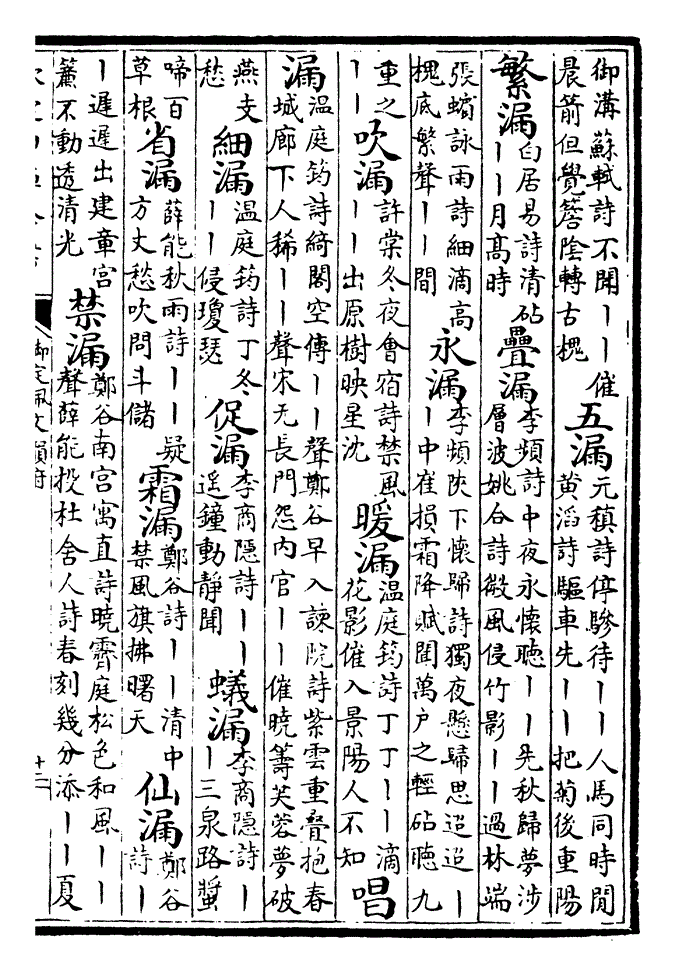 御溝蘇軾詩不聞ーー催
晨箭但覺簷陰轉古槐
五漏
元稹詩停驂待ーー人馬同時閒
黄滔詩驅車先ーー把菊後重陽
繁漏
白居易詩清砧
ーー月髙時
疊漏
李頻詩中夜永懷聽ーー先秋歸夢涉
層波姚合詩微風侵竹影ーー過林端
張蠙詠雨詩細滴高
槐底繁聲ーー間
永漏
李頻陜下懷歸詩獨夜懸歸思迢迢ー
ー中崔損霜降賦聞萬户之輕砧聽九
重之
ーー
吹漏
許棠冬夜會宿詩禁風
ーー出原樹映星沈
暖漏
温庭筠詩丁丁ーー滴
花影催入景陽人不知
唱
漏
温庭筠詩綺閣空傳ーー聲鄭谷早入諫院詩紫雲重疊抱春
城廊下人稀ーー聲宋无長門怨内官ーー催曉籌芙蓉夢破
燕支
愁
細漏
温庭筠詩丁冬
ーー侵瓊瑟
促漏
李商隱詩ーー
遥鐘動靜聞
蟻漏
李商隱詩ー
ー三泉路螿
啼百
草根
省漏
薛能秋雨詩ーー疑
方丈愁吹問斗儲
霜漏
鄭谷詩ーー清中
禁風旗拂曙天
仙漏
鄭谷
詩ー
ー遲遲出建章宫
簾不動透清光
禁漏
鄭谷南宫寓直詩曉霽庭松色和風ーー
聲薛能投杜舍人詩春刻幾分添ーー夏
御定佩文韻府
十二